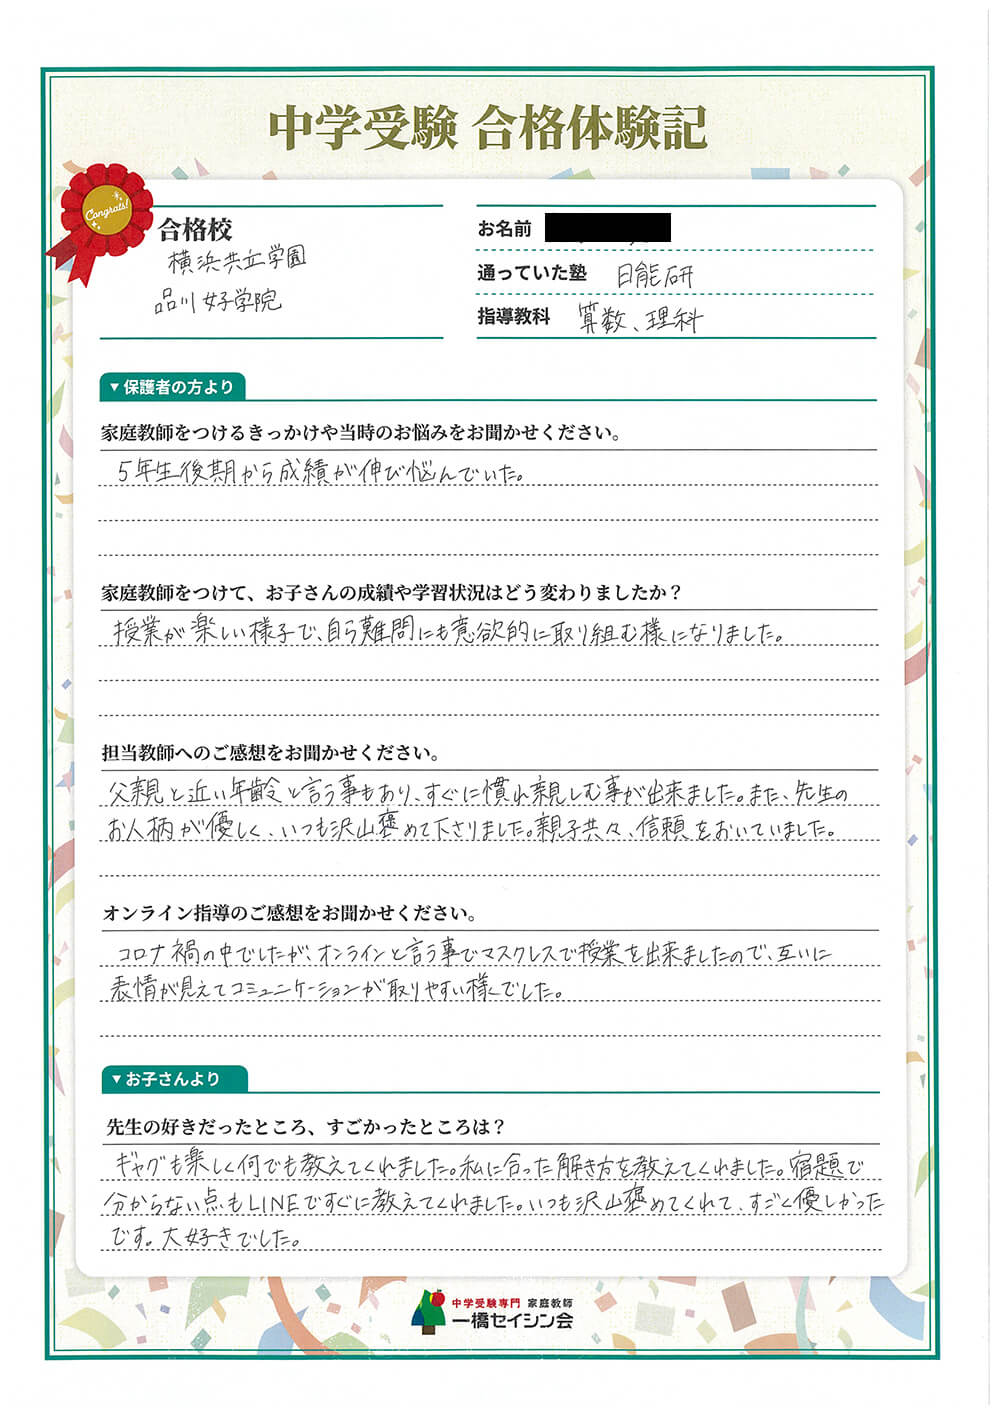 中学受験 合格体験記
Congrats!
合格校
横浜共立学園
品川女子学院
お名前
通っていた塾 日能研
指導教科 算数、理科
▼保護者の方より
家庭教師をつけるきっかけや当時のお悩みをお聞かせください。
5年生後期から成績が伸び悩んでいた。
家庭教師をつけて、お子さんの成績や学習状況はどう変わりましたか？
授業が楽しい様子で、自ら難問にも意欲的に取り組む様になりました。
担当教師へのご感想をお聞かせください。
父親と近い年齢と言う事もあり、すぐに慣れ親しむ事が出来ました。また、先生の
お人柄が優しく、いつも沢山褒めて下さりました。親子共々、信頼をおいていました。
オンライン指導のご感想をお聞かせください。
コロナ禍の中でしたが、オンラインと言う事でマスクレスで授業を出来ましたので、互いに
表情が見えてコミュニケーションが取りやすい様でした。
▼お子さんより
先生の好きだったところ、すごかったところは？
ギャグも楽しく何でも教えてくれました。私に合った解き方を教えてくれました。宿題で
分からない点もLINEですぐに教えてくれました。いつも沢山褒めてくれて、すごく優しかった
です。大好きでした。
中学受験専門 家庭教師
一橋セイシン会